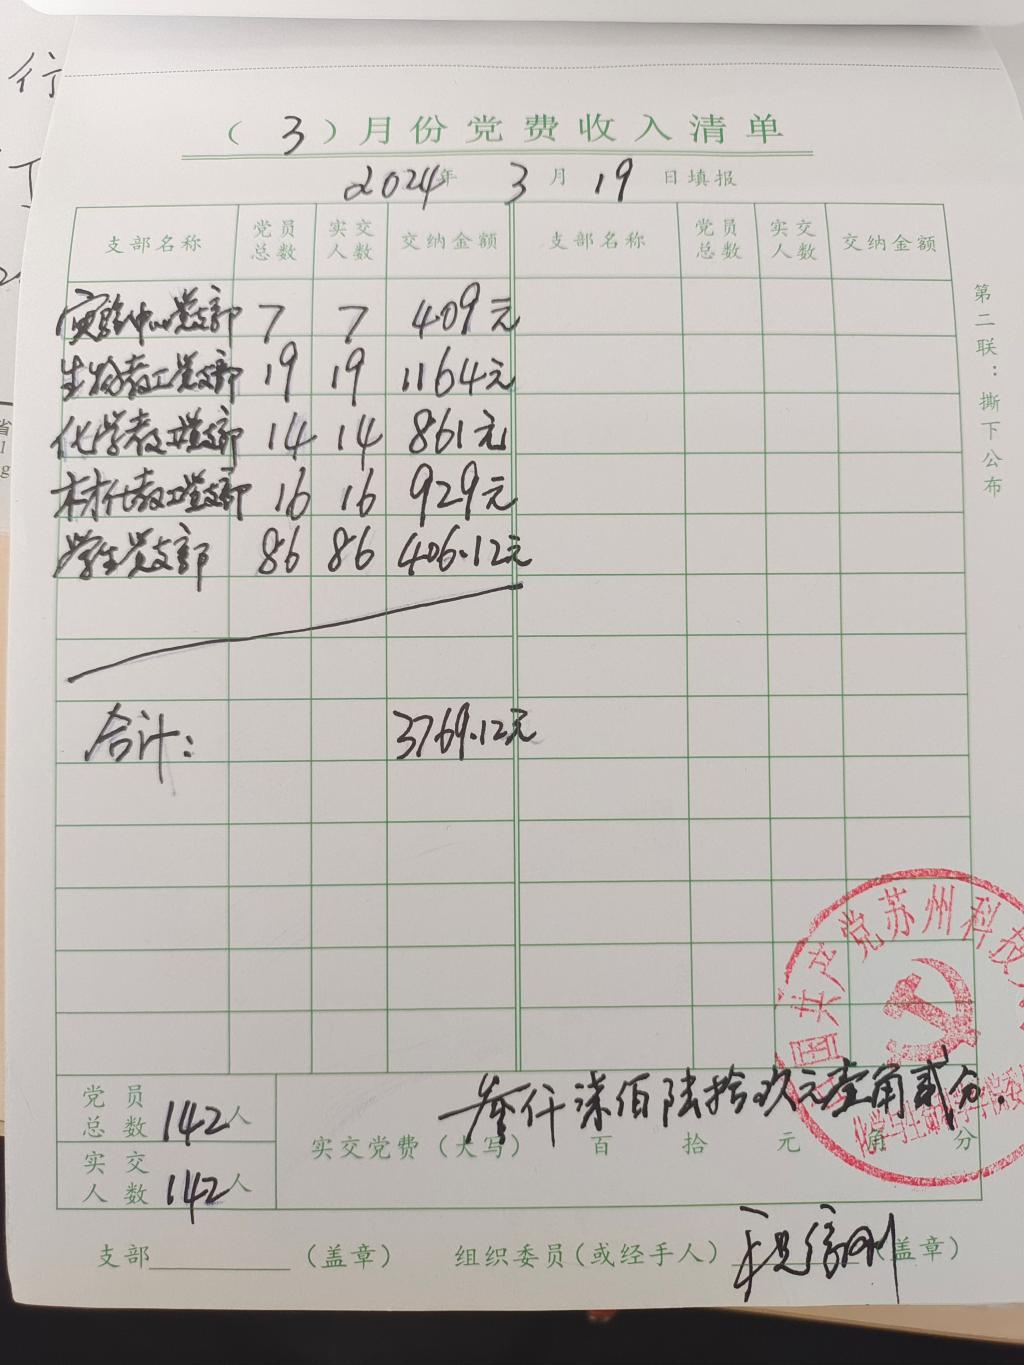 行
（3）月份党费收入清单
2024年 3月 19日填报
支部名称 党员总数 实交人数 交纳金额 支部名称 党员总数 实交人数 交纳金额
实验中心党支部 7 7 409元
生物教工党支部 19 19 1164元
化学教工党支部 14 14 861元
材化教工党支部 16 16 929元
学生党支部 86 86 406.12元
合计： 3769.12元
第二联：撕下公布
党员总数 142人
实交人数 142人
叁仟柒佰陆拾玖元壹角贰分.
实交党费（大写） 百 拾 元 角 分
国共产党苏州科技
化学与生命科学学院委
支部（盖章） 组织委员（或经手人）（盖章）